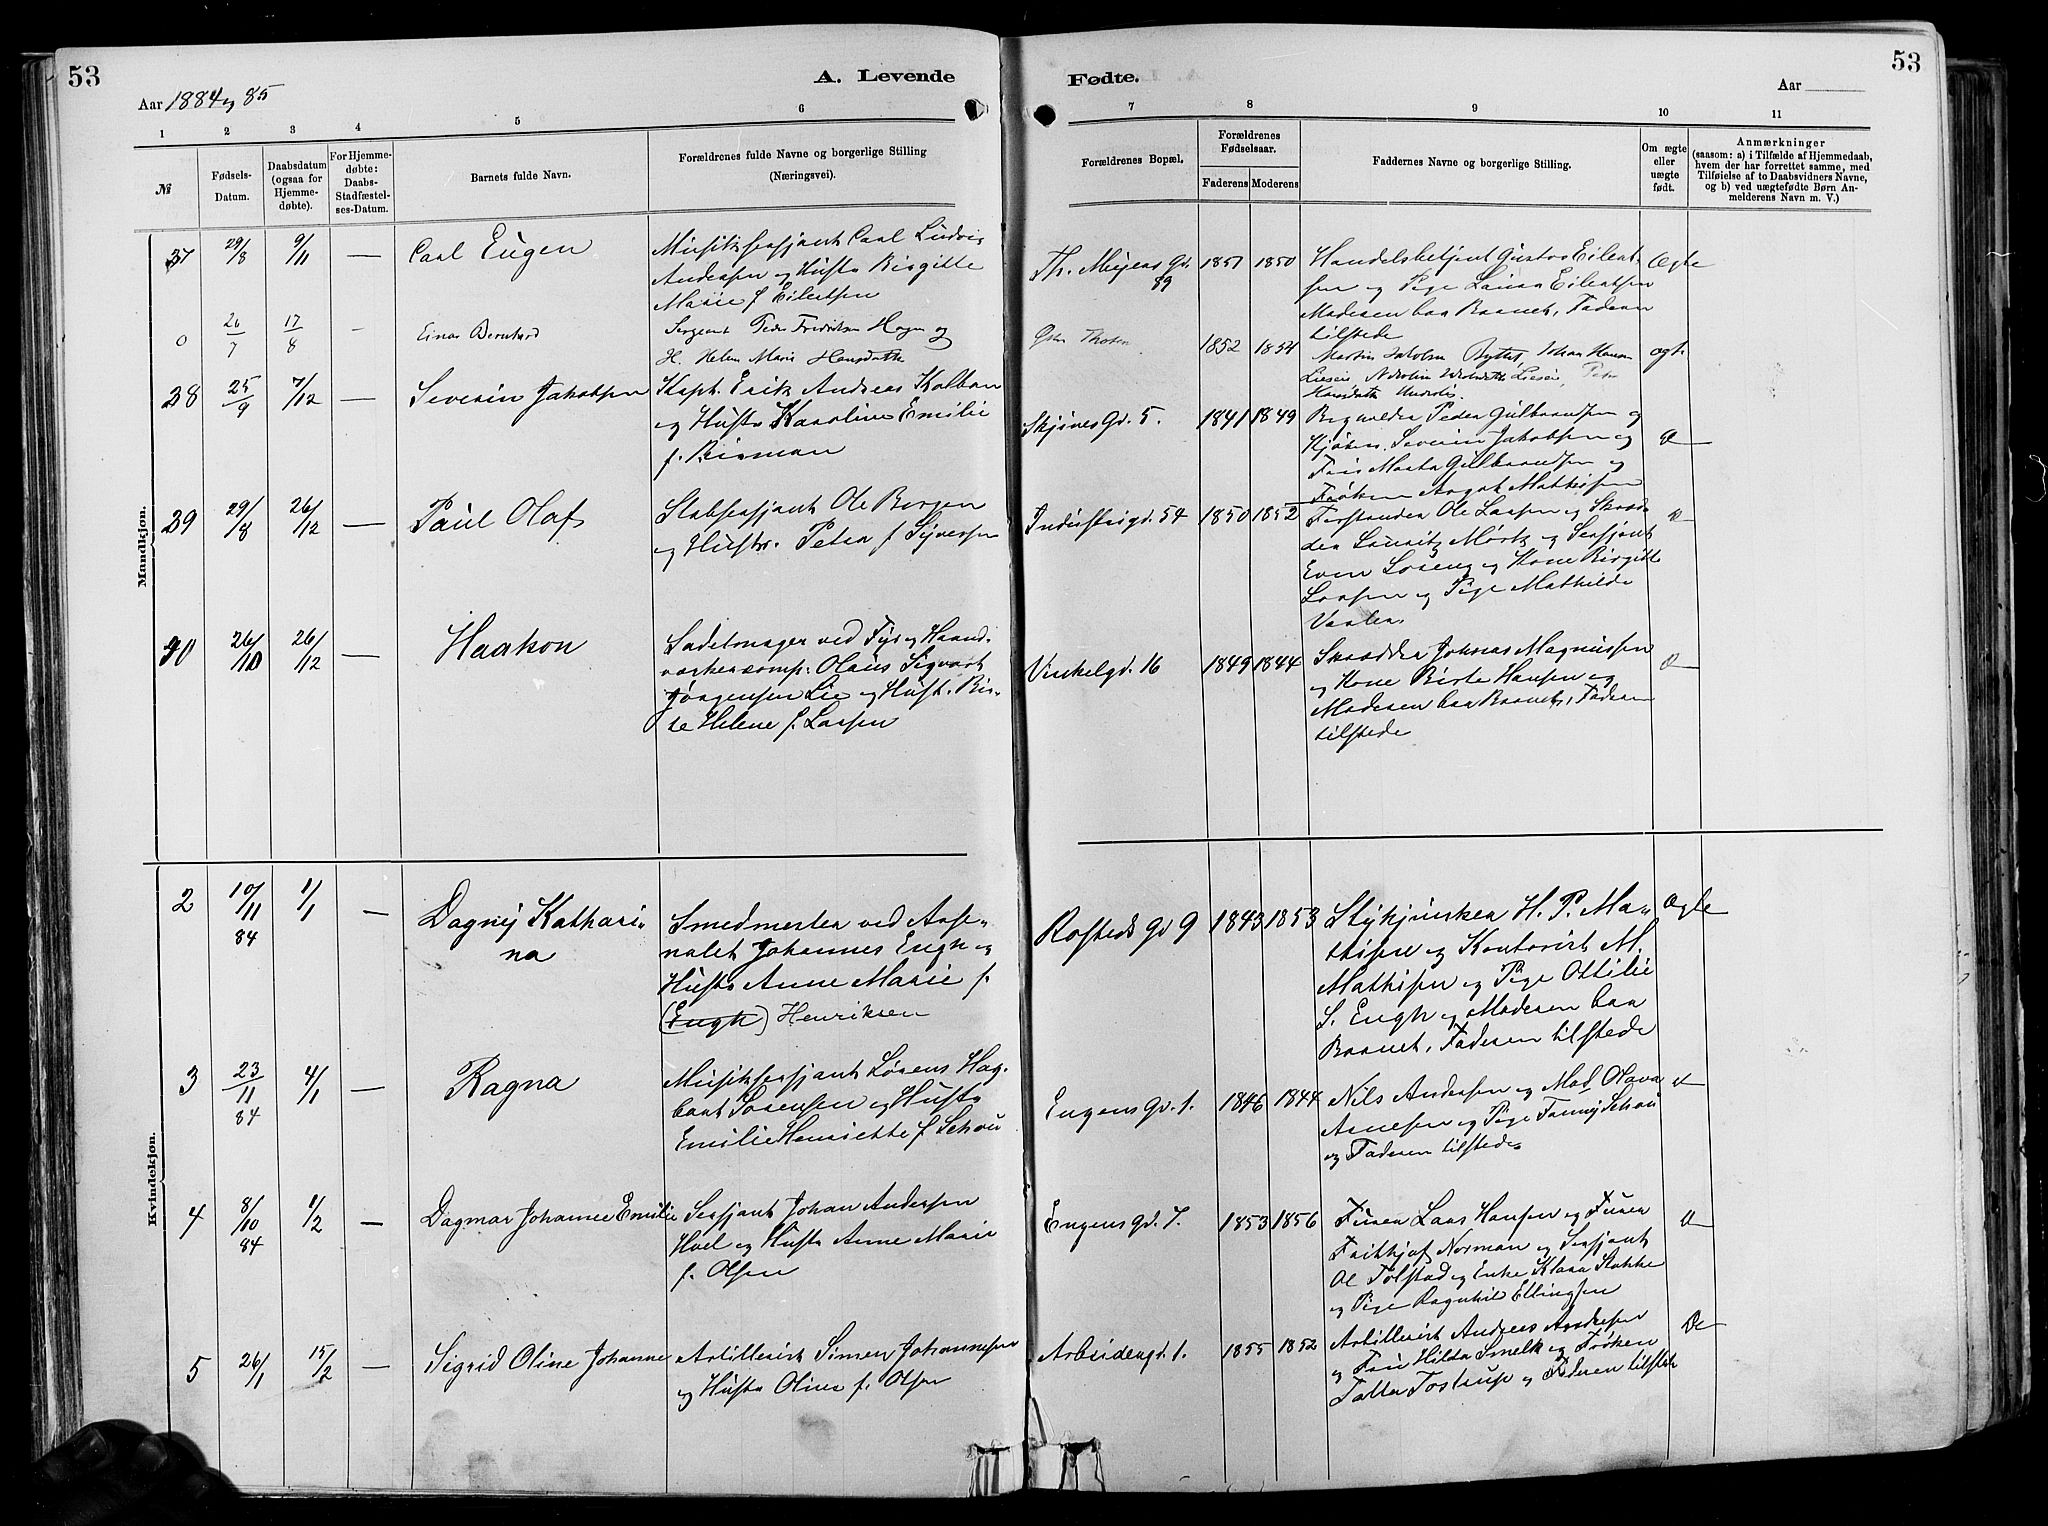 53
A. Levende
Aar 1884 og 85
1 2 3 4 5 6
№
Fødsels-
Datum.
Daabsdatum
(ogsaa for
Hjemme-
døbte).
For Hjemme-
døbte:
Daabs-
Stadfæstel-
ses-Datum.
Barnets fulde Navn.
Forældrenes fulde Navne og borgerlige Stilling
(Næringsvei).
Mandkjøn.
37 29/8 9/11 — Carl Eugen
Musiksersjant Carl Ludvig
Andersen og Hustr Birgitte
Marie f Eilertsen
0 26/7 17/8 - Einar Bernhard
Sergeant Peder Fredriksen Hagen og
H. Helene Marie Hansdatter
38 25/9 7/12 — Severin Jakobsen
Kapt. Erik Andreas Kolban
og Hustr Karoline Emilie
f. Birman
39 29/8 26/12 — Paul Olaf
Stabsersjant Ole Borgen
og Hustr. Petra f Syversen
40 26/10 26/12 — Haakon
Sadelmager ved Fys og Haand-
værkercomp. Olaus Sigvart
Jørgensen Lie og Hust. Bir-
te Helene f. Larsen
Kvindekjøn.
2 10/11 84 1/1 — Dagny Kathari-
na
Smedmester ved Arse-
nalet Johannes Engh og
Hustr Anne Marie f.
(Engh) Henriksen
3 23/11 84 4/1 — Ragna
Musikserjant Sørens Hag-
bart Sørensen og Hustr
Emilie Henriette f Schou
4 8/10 84 1/2 — Dagmar Johanne Emilie
Sersjant Johan Andersen
Hoel og Hustr Anne Marie
f. Olsen
5 26/1 15/2 — Sigrid Oline Johanne
Artillerist Simen Johannesen
og Hustr Oline f. Olsen
53
Fødte.
Aar
7 8 9 10 11
Forældrenes Bopæl.
Forældrenes
Fødselsaar.
Faderens Moderens
Faddernes Navne og borgerlige Stilling.
Om ægte
eller
uægte
født.
Anmærkninger
(saasom: a) i Tilfælde af Hjemmedaab,
hvem der har forrettet samme, med
Tilføielse af to Daabsvidners Navne,
og b) ved uægtefødte Børn An-
melderens Navn m. V.)
Th. Meyers Gd.
89
1851 1850
Handelsbetjent Gustav Eilert-
sen og Pige Laura Eilertsen
Moderen bar Barnet, Faderen
tilstede
Ægte
Østre Thoten
1852 1854
Martin Jakobsen
ægte
Skjines Gd. 5.
1841 1849
Peder Gulbrandsen og
Severin Jakobsen og
Frue Marta Gulbrandsen og
Frøken Mathisen
Æ
Industrigd. 54
1850 1852
Forstander Ole Larsen og Skræd-
der Lauritz Mørk og Sersjant
Even Loseng og Kone Birgitte
Larsen og Pige Mathilde
Vaaler
Æ
Vinkelgd. 16
1849 1844
Skrædder Johnas Magnussen
og Kone Birte Hansen og
Moderen bar Barnet, Faderen
tilstede
Æ
Rosteds Gd 9
1843 1853
Stykjunker H. P. Ma-
thisen og Kontorist M.
Mathisen og Pige Ottilie
S. Engh og Moderen bar
Barnet, Faderen tilstede
Ægte
Engens Gd. 1.
1846 1844
Nils Andersen og Mad Olava
Arnesen og Pige Fanny Schou
og Faderen tilstede
Æ
Engens Gd. 7.
1853 1856
Furer Lars Hansen og Furer
Frithjof Norman og Sersjant
Ol Tolstad og Enke Klara Stokke
og Pige Ragnhild Ellingsen
Æ
Arbeidergd. 1.
1855 1852
Artillerist Andreas Andersen
og Frue Hilda Smelk og Frøken
Tostrup og Faderen tilstede
Æ